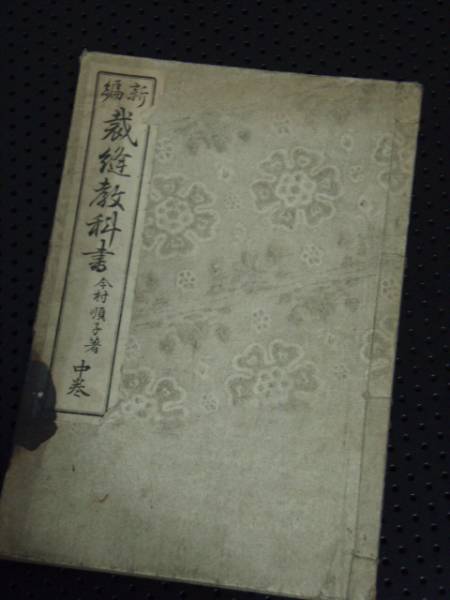 新編
裁縫教科書
今村順子著
中巻